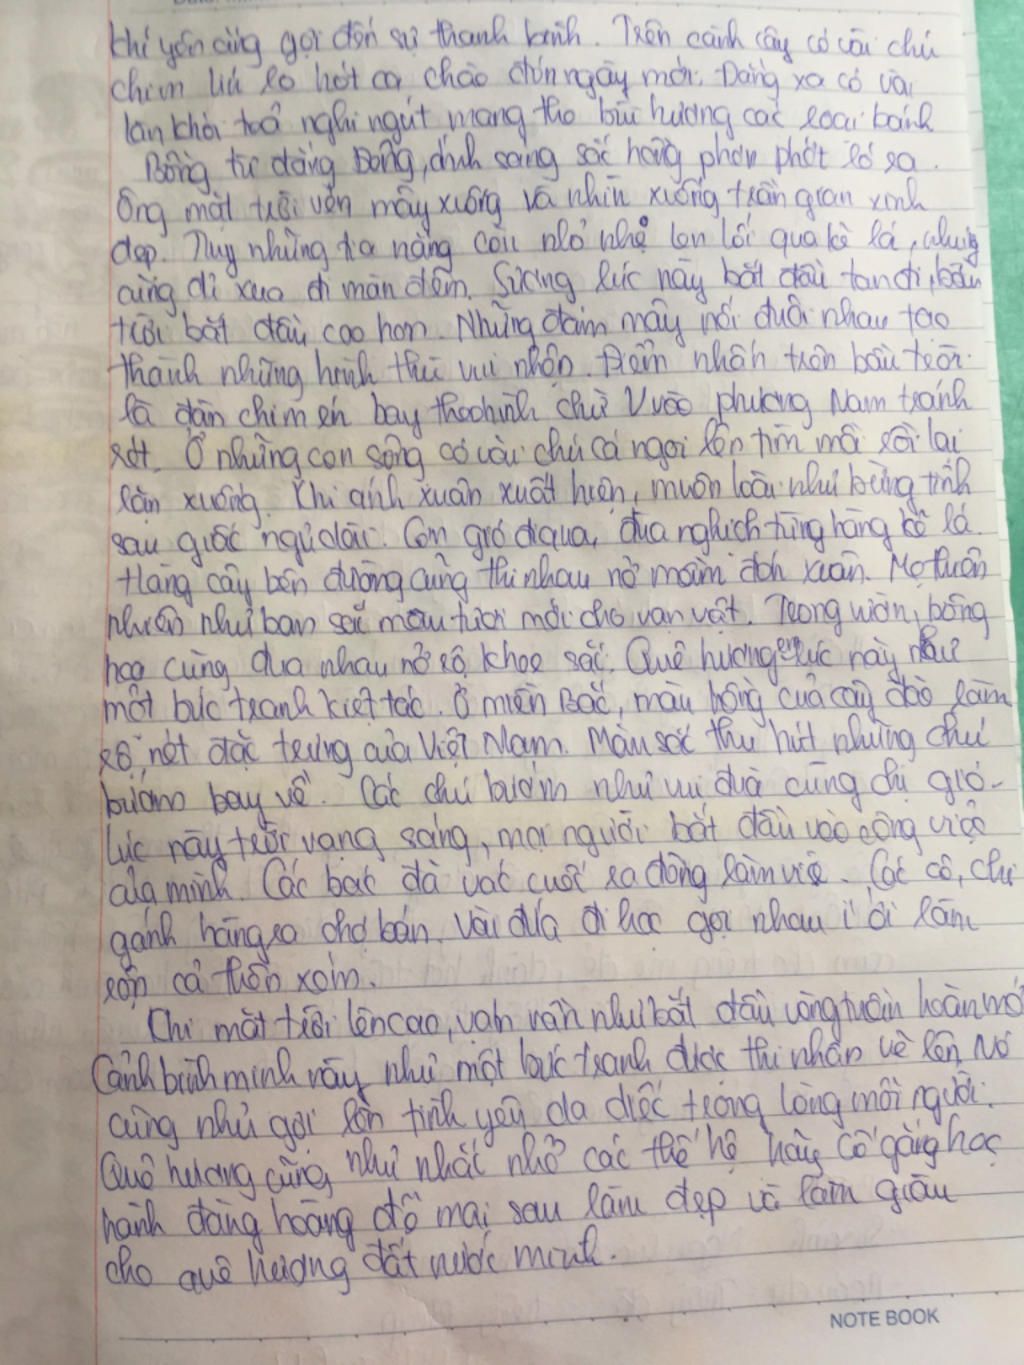 khí yên cũng gợi đến sự thanh bình. Trên cành cây có vài chú
chim líu lo hót ca chào đón ngày mới. Đằng xa có vài
làn khói toả nghi ngút mang theo bùi hương các loại bánh
Bỗng từ đằng Đông, ánh sáng sắc hồng phơn phớt ló ra.
Ông mặt trời vén mây xuống và nhìn xuống trần gian xinh
đẹp. Tuy những tia nắng còn nhỏ nhẹ len lỏi qua kẽ lá, nhưng
cũng đủ xua đi màn đêm. Sương lúc này bắt đầu tan đi, bầu
trời bắt đầu cao hơn. Những đám mây nối đuôi nhau tạo
thành những hình thù vui nhộn. Điểm nhấn trên bầu trời
là đàn chim én bay theo hình chữ V vào phương Nam tránh
rét. Ở những con sông có vài chú cá ngoi lên tìm mồi rồi lại
lặn xuống. Khi ánh xuân xuất hiện, muôn loài như bừng tỉnh
sau giấc ngủ dài. Cơn gió đi qua, đùa nghịch từng hàng kẽ lá.
Hàng cây bên đường cũng thi nhau nở mầm đón xuân. Mẹ thiên
nhiên như ban sắc màu tươi mới cho vạn vật. Trong vườn, bông
hoa cùng đua nhau nở rộ khoe sắc. Quê hương em lúc này như
một bức tranh kiệt tác. Ở miền Bắc, màu hồng của cây đào làm
rõ nét đặc trưng của Việt Nam. Màu sắc thu hút những chú
bướm bay về. Các chú bướm như vui đùa cùng chị gió.
Lúc này trời vạng sáng, mọi người bắt đầu vào công việc
của mình. Các bác đã vác cuốc ra đồng làm việ. Các cô, chị
gánh hàng ra chợ bán. Vài đứa đi học gọi nhau í ới làm
rộn cả thôn xóm.
Khi mặt trời lên cao, vạn vần như bắt đầu vòng tuần hoàn mới
Cảnh bình minh này như một bức tranh được thi nhân vẽ lên. Nó
cũng như gợi lên tình yêu da diết trong lòng mỗi người.
Quê hương cũng như nhắc nhở các thế hệ hãy cố gắng học
hành đàng hoàng để mai sau làm đẹp và làm giàu
cho quê hương đất nước mình.
NOTE BOOK